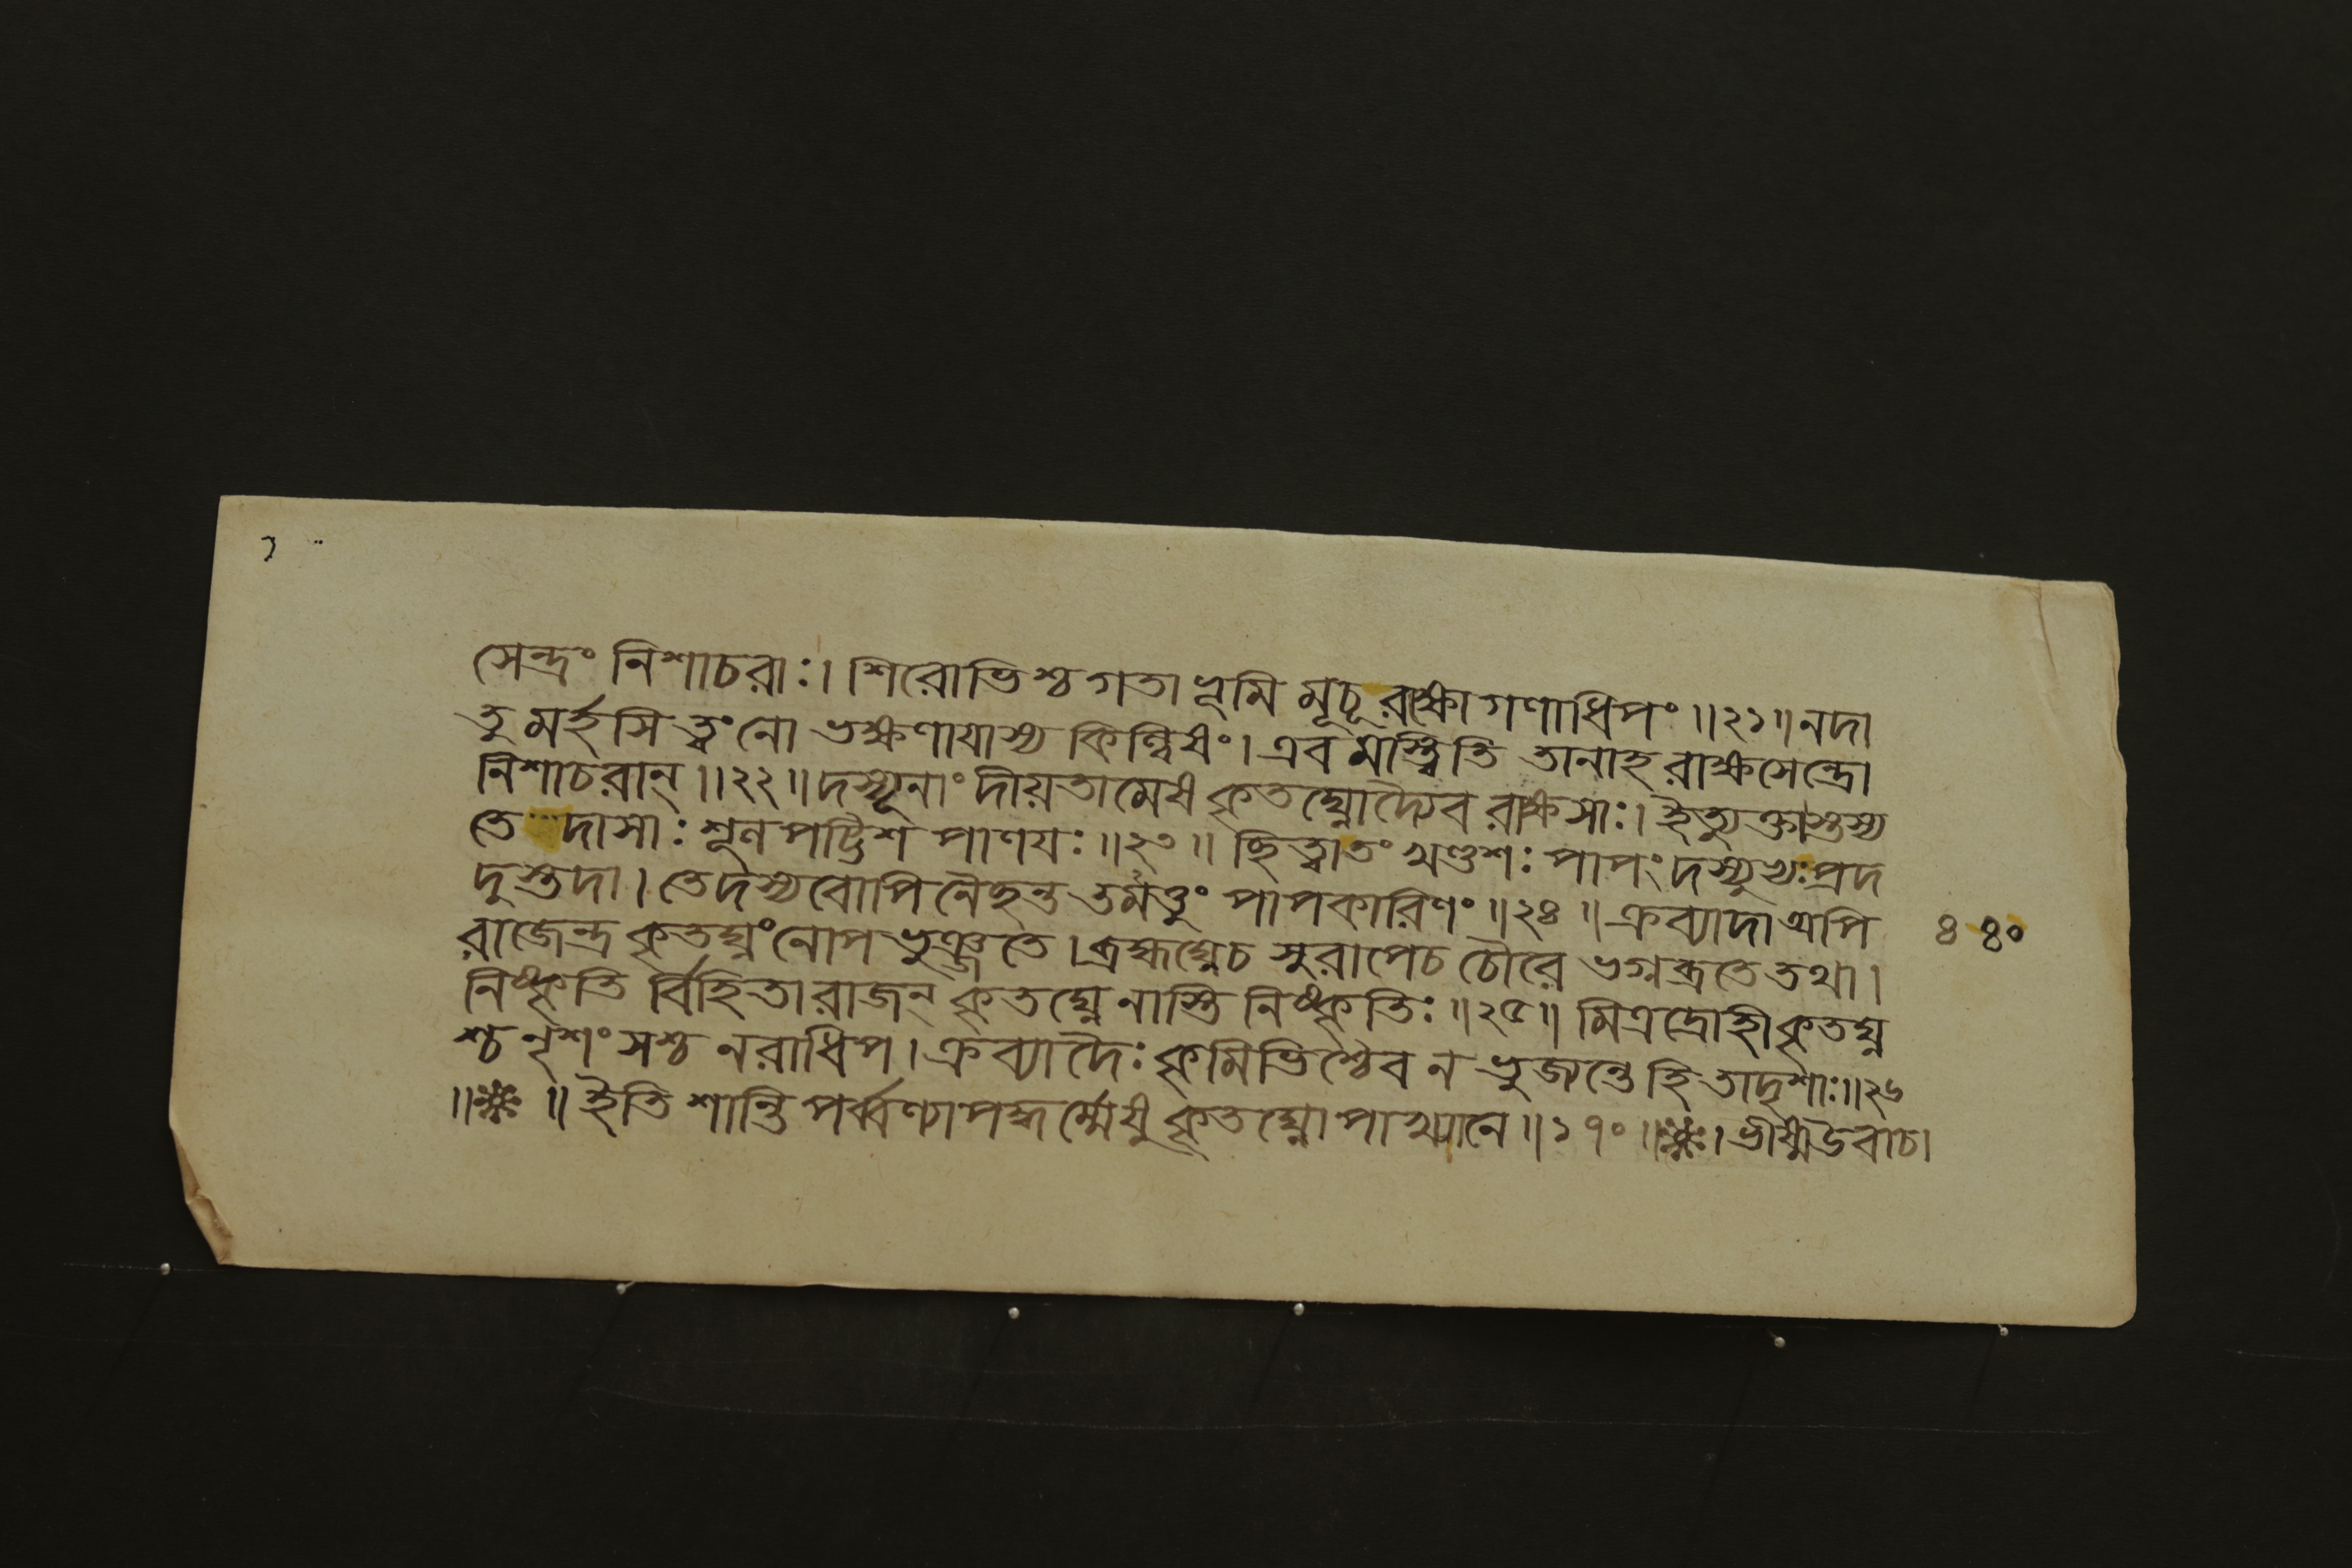 সেন্দ্রং নিশাচরাঃ। শিরোভিশ্চ গতা ভূমি মূচূ রক্ষো গণাধিপং ॥২১॥ নদা
তু মর্হসি ত্বং নো ভক্ষণাযাস্য কিল্বিষং। এব মস্ত্বিতি তানাহ রাক্ষসেন্দ্রো
নিশাচরান্ ॥২২॥ দস্যূনাং দীয়তামেষ কৃতঘ্নোদ্যৈব রাক্ষসাঃ। ইত্যুক্তাস্তস্য
তে দাসাঃ শূল পট্টিশ পাণযঃ ॥২৩॥ ছিত্বাতং খণ্ডশঃ পাপং দস্যুভ্যঃ প্রদ
দুস্তদা। তেদস্যবোপি নৈছন্ত ভর্মত্তুং পাপকারিণং ॥২৪॥ ক্রব্যাদা অপি
রাজেন্দ্র কৃতঘ্নং নোপ ভুঞ্জতে। ব্রহ্মঘ্নেচ সুরাপেচ চৌরে ভগ্নব্রতে তথা।
নিষ্কৃতি র্বিহিতা রাজন্ কৃতঘ্নে নাস্তি নিষ্কৃতিঃ ॥২৫॥ মিত্রদ্রোহী কৃতঘ্ন
শ্চ নৃশং সশ্চ নরাধিপ। ক্রব্যাদৈঃ কৃমিভিশ্চৈব ন ভুজন্তে হি তাদৃশাঃ॥২৬
॥ ॥ ইতি শান্তি পর্ব্বণ্যাপদ্ধর্ম্মেষু কৃতঘ্নোপাখ্যানে ॥১৭০॥ । ভীষ্মউবাচ।
৪ ৪০